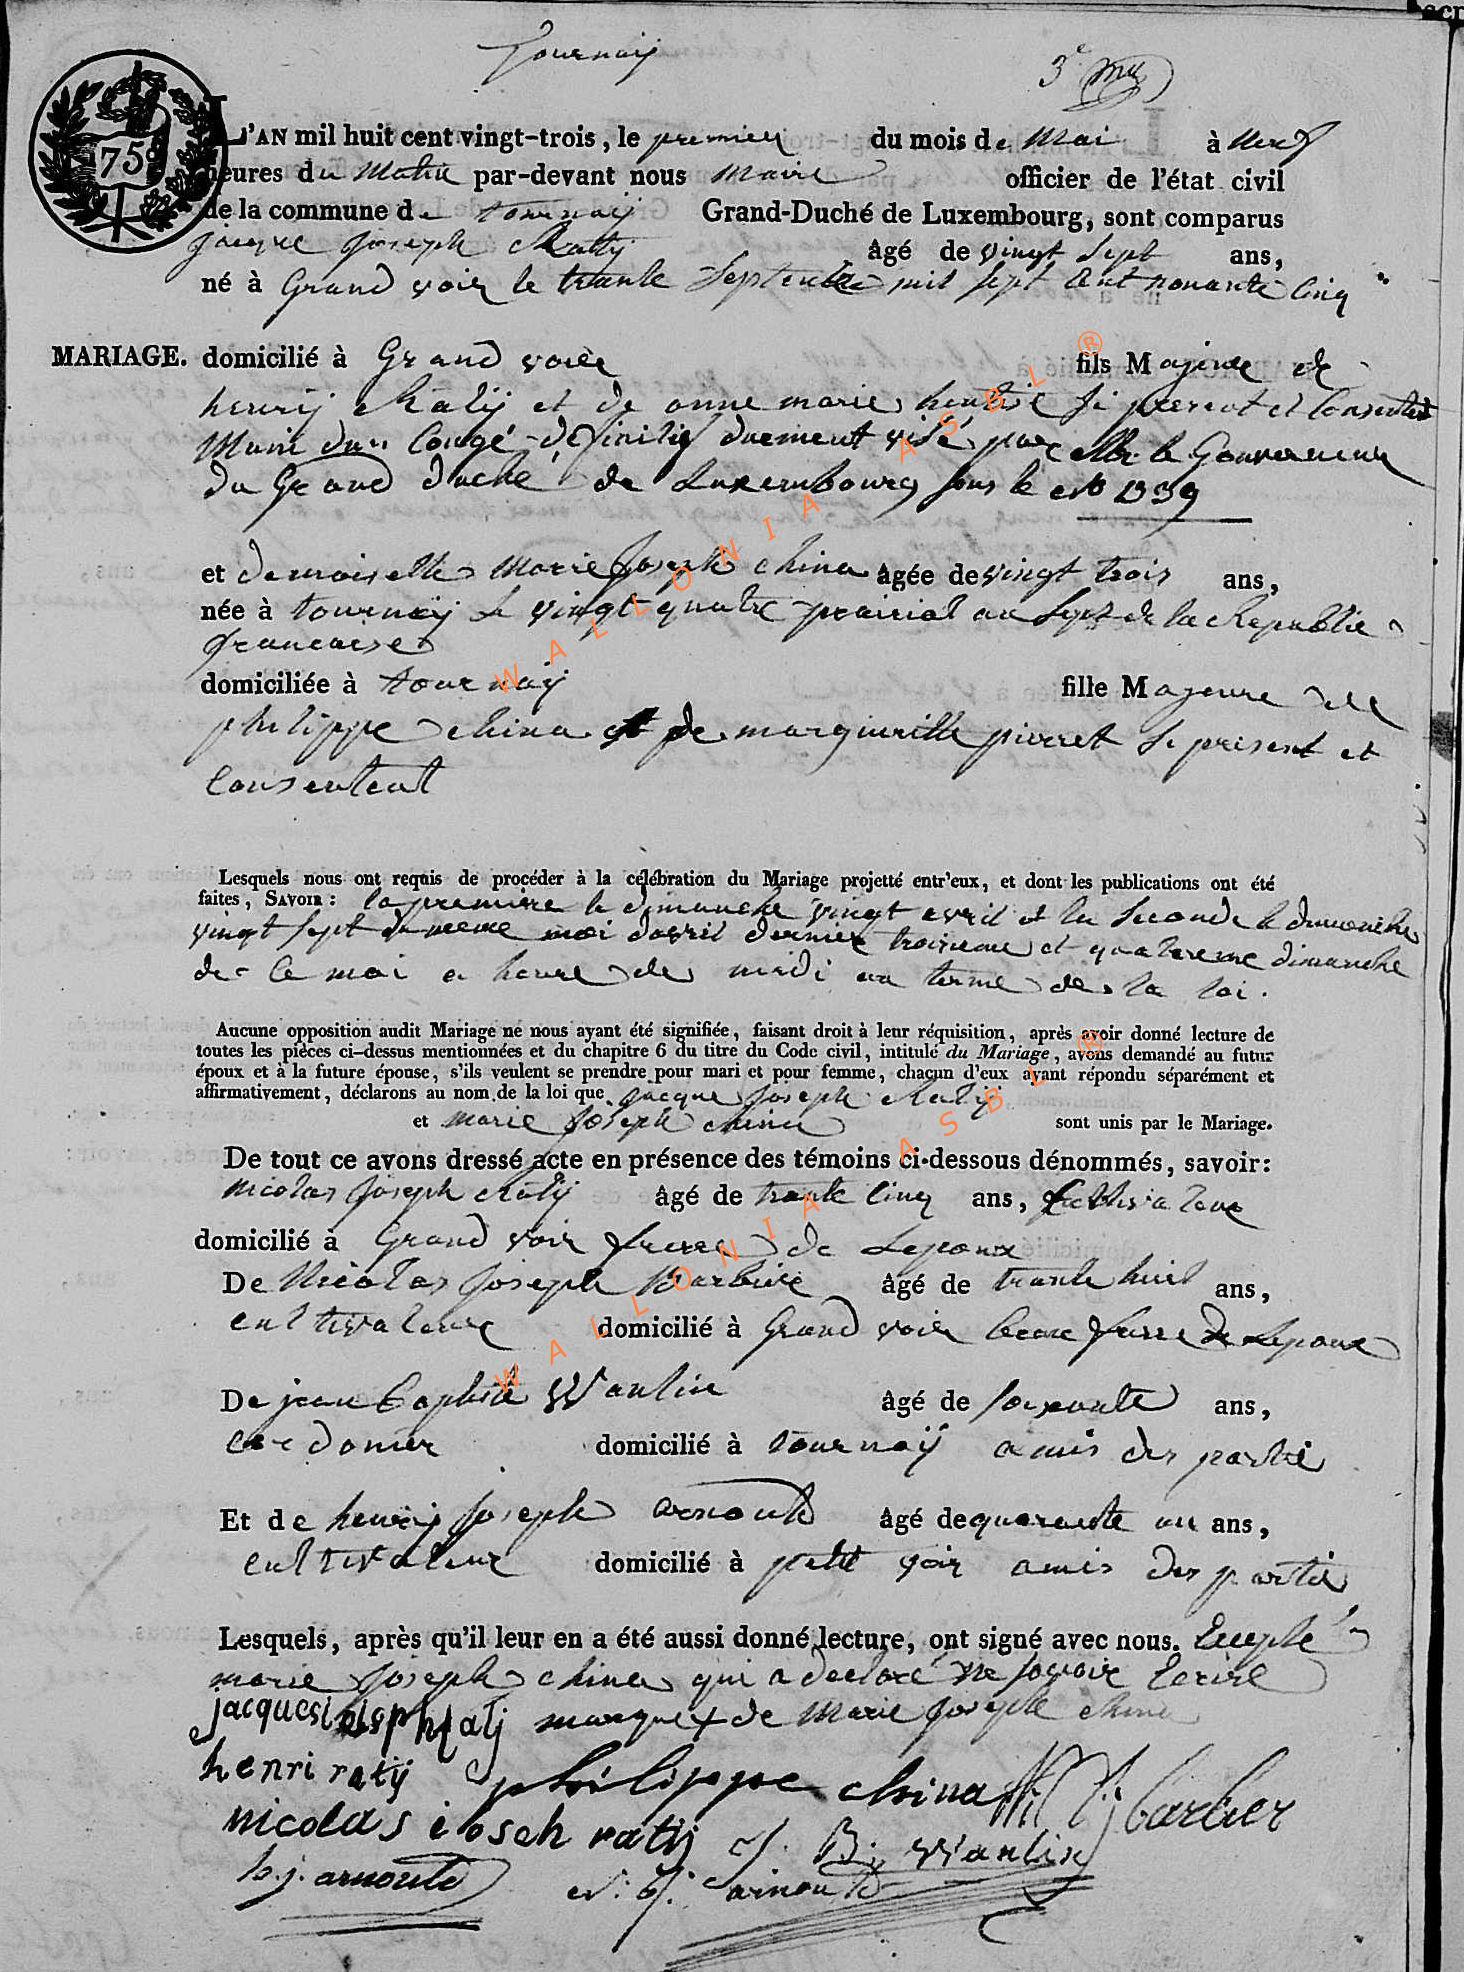 Tournaij
3e
75
L'AN mil huit cent vingt-trois, le premier du mois de Mai à neuf
heures du Matin par-devant nous Maire officier de l'état civil
de la commune de tournaij Grand-Duché de Luxembourg, sont comparus
jacque Joseph Ratij âgé de vingt Sept ans,
né à Grand voir le trante Septembre mil sept Cent nonante Cinq
MARIAGE. domicilié à Grand voir fils Majeur de
henrij Ratij et de anne marie si present et Consentent
Muni dun Congé définitif duement visé par le Gouverneur
du Grand duché de Luxembourg sous le no 1339
et demoiselle Marie Joseph china âgée de vingt trois ans,
née à tournaÿ le vingt quatre prairial an Sept de la Republic
francaise
domiciliée à tournaij fille Majeure de
philippe china et de margueritte pierret si present et
Consentent
Lesquels nous ont requis de procéder à la célébration du Mariage projetté entr'eux, et dont les publications ont été
faites, SAVOIR: la premiere le dimanche vingt avril et la Seconde le dimanche
vingt sept du meme moi davril dernier troisieme et quatereme dimanche
de Ce moi a heure de midi au terme de la loi.
Aucune opposition audit Mariage ne nous ayant été signifiée, faisant droit à leur réquisition, après avoir donné lecture de
toutes les pièces ci-dessus mentionnées et du chapitre 6 du titre du Code civil, intitulé du Mariage, avons demandé au futur
époux et à la future épouse, s'ils veulent se prendre pour mari et pour femme, chacun d'eux ayant répondu séparément et
affirmativement, déclarons au nom de la loi que jacque Joseph Ratij
et marie Joseph china sont unis par le Mariage.
De tout ce avons dressé acte en présence des témoins ci-dessous dénommés, savoir:
Nicolas Joseph Ratij âgé de trante Cinq ans, Cultivateur
domicilié à Grand voir frere de Lepoux
De Nicolas Joseph Barbier âgé de trante huit ans,
cultivateur domicilié à Grand voir beau frere de Lepoux
De jean Baptiste Wanlin âgé de soixante ans,
domicilié à tournaÿ amis des partie
Et de henrij Joseph arnould âgé de quarante un ans,
cultivateur domicilié à petit voir amis des partie
Lesquels, après qu'il leur en a été aussi donné lecture, ont signé avec nous. Excepté
marie Joseph china qui a declaré ne savoir Ecrire
jacques ioseph ratij marque + de Marie Joseph china
henri ratij philippe china N. J. barbier
nicolas ioseh ratij J. B. Wanlin
h. j. arnould N. J. arnould
WALLONIA ASBL ®
WALLONIA ASBL ®